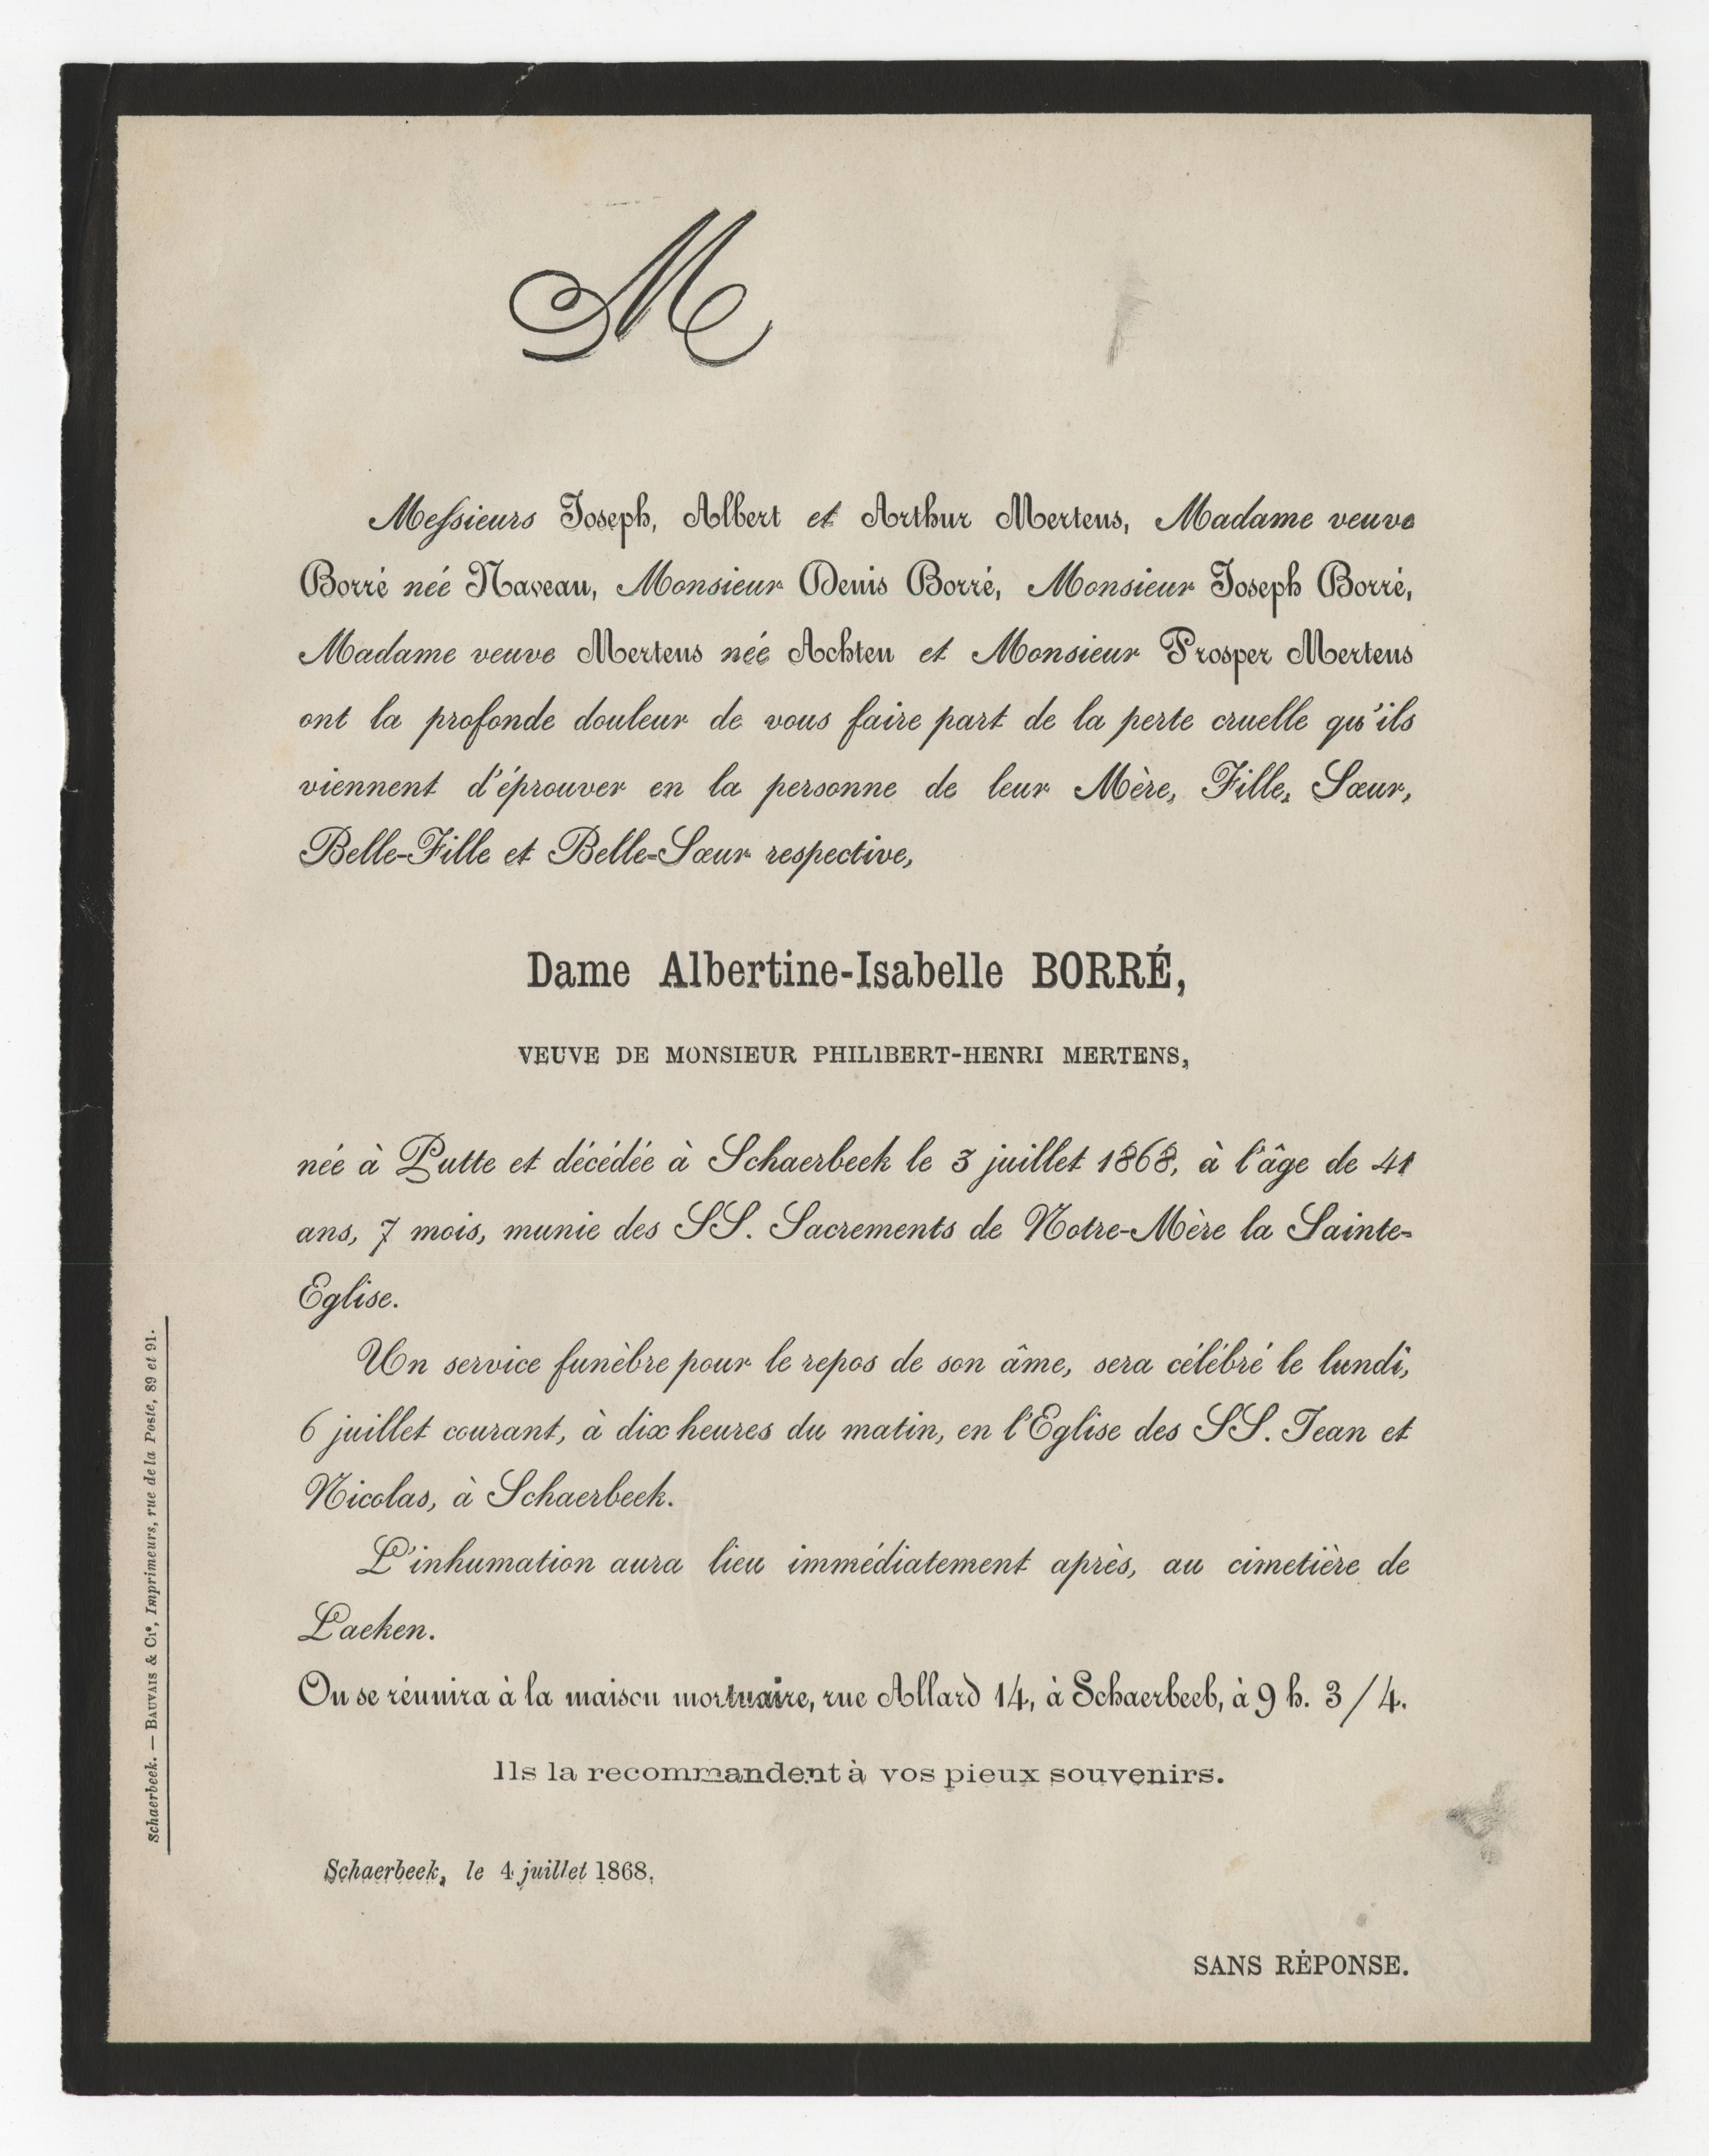 M
Messieurs Joseph, Albert et Arthur Mertens, Madame veuve
Borré née Naveau, Monsieur Denis Borré, Monsieur Joseph Borré,
Madame veuve Mertens née Achten et Monsieur Prosper Mertens
ont la profonde douleur de vous faire part de la perte cruelle qu'ils
viennent d'éprouver en la personne de leur Mère, Fille, Sœur,
Belle-Fille et Belle-Sœur respective,
Dame Albertine-Isabelle BORRÉ,
VEUVE DE MONSIEUR PHILIBERT-HENRI MERTENS,
née à Putte et décédée à Schaerbeek le 3 juillet 1868, à l'âge de 41
ans, 7 mois, munie des SS. Sacrements de Notre-Mère la Sainte-
Eglise.
Un service funèbre pour le repos de son âme, sera célébré le lundi,
6 juillet courant, à dix heures du matin, en l'Eglise des SS. Jean et
Nicolas, à Schaerbeek.
L'inhumation aura lieu immédiatement après, au cimetière de
Laeken.
On se réunira à la maison mortuaire, rue Allard 14, à Schaerbeeb, à 9 h. 3/4.
Ils la recommandent à vos pieux souvenirs.
Schaerbeek, le 4 juillet 1868.
SANS RÉPONSE.
Schaerbeek. — BAUVAIS & Cie, Imprimeurs, rue de la Poste, 89 et 91.